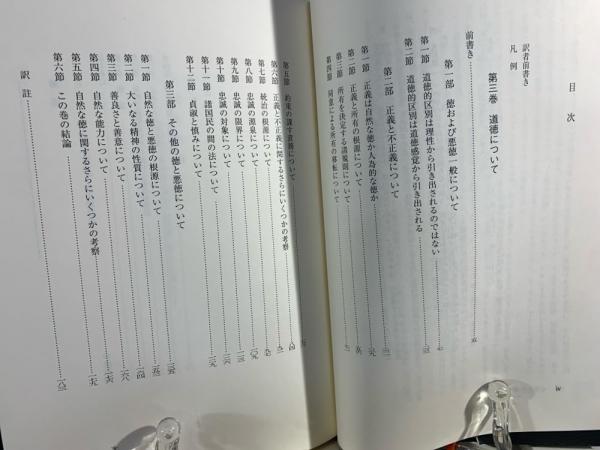 目次
訳者前書き
凡例
第三巻 道徳について
前書き
第一部 徳および悪徳一般について
第一節 道徳的区別は理性から引き出されるのではない
第二節 道徳的区別は道徳感覚から引き出される
第二部 正義と不正義について
第一節 正義は自然な徳か人為的な徳か
第二節 正義と所有の根源について
第三節 所有を決定する諸規則について
第四節 同意による所有の移転について
第五節 約束の課す責務について
第六節 正義と不正義に関するさらにいくつかの考察
第七節 統治の根源について
第八節 忠誠の源泉について
第九節 忠誠の限界について
第十節 忠誠の対象について
第十一節 諸国民の間の法について
第十二節 貞淑と慎みについて
第三部 その他の徳と悪徳について
第一節 自然な徳と悪徳の根源について
第二節 大いなる精神の性質について
第三節 善良さと善意について
第四節 自然な能力について
第五節 自然な徳に関するさらにいくつかの考察
第六節 この巻の結論
訳註
iv